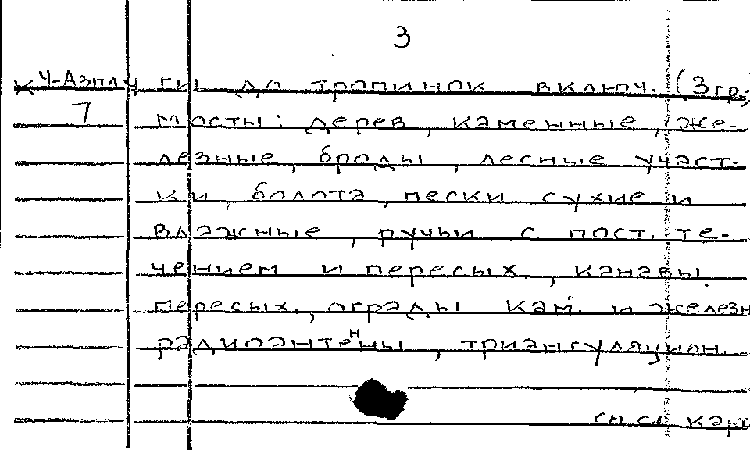 3
гии до тропинок включ. (3 гр.
7 мосты: дерев, каменные, же-
лезные, броды, лесные участ-
ки, болота, пески сухие и
влажные, ручьи с пост. те-
чением и пересых., канавы
пересых., ограды кам. и железн
радиоантенны, триангуляцион.